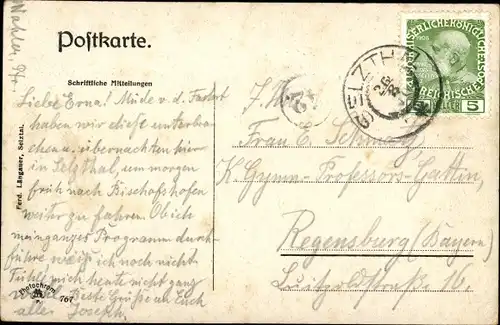 Postkarte.
Schriftliche Mitteilungen
Liebe Erna! Müde v. d. Fahrt
haben wir diese unterbro-
chen u. übernachten hier
in Selzthal, um morgen
früh nach Bischofshofen
weiter zu fahren. Ob ich
mein ganzes Programm durch-
führe weiß ich noch nicht
Fühle mich heute nicht ganz
Beste Grüße an Euch
alle. Joseph.
Ferd. Längauer, Selztal.
Photochrom
767
SELZTHAL
5 5
Frau E.
K. Gymn-Professors-Gattin,
Regensburg (Bayern)
Luitpoldstraße